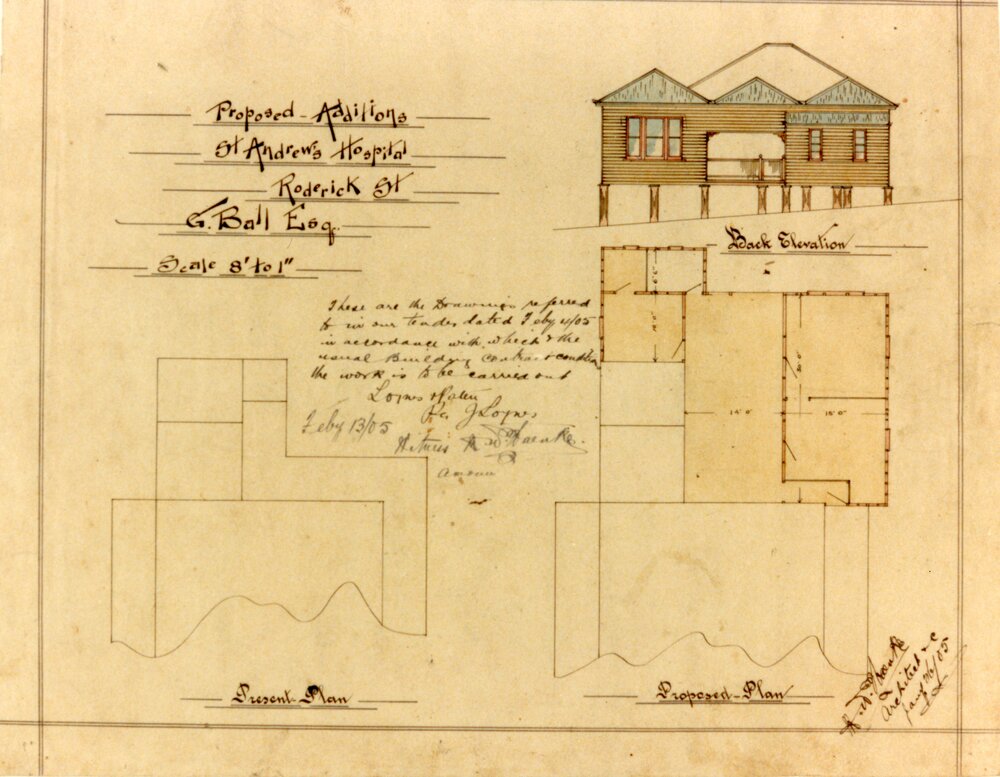 Proposed-Additions
St Andrew's Hospital
Roderick St
G. Ball Esq.
Scale 8' to 1"
Back Elevation
These are the Drawings referred
to in our tender dated Feby 4/05
in accordance with which & the
usual Building Contract conditions
the work is to be carried out
Loynes
J Loynes
Feby 13/05
Witness
6' 6"
12' 0"
20' 0"
14' 0"
15' 0"
Present-Plan
Proposed-Plan
Architect & c
Jany 26/05